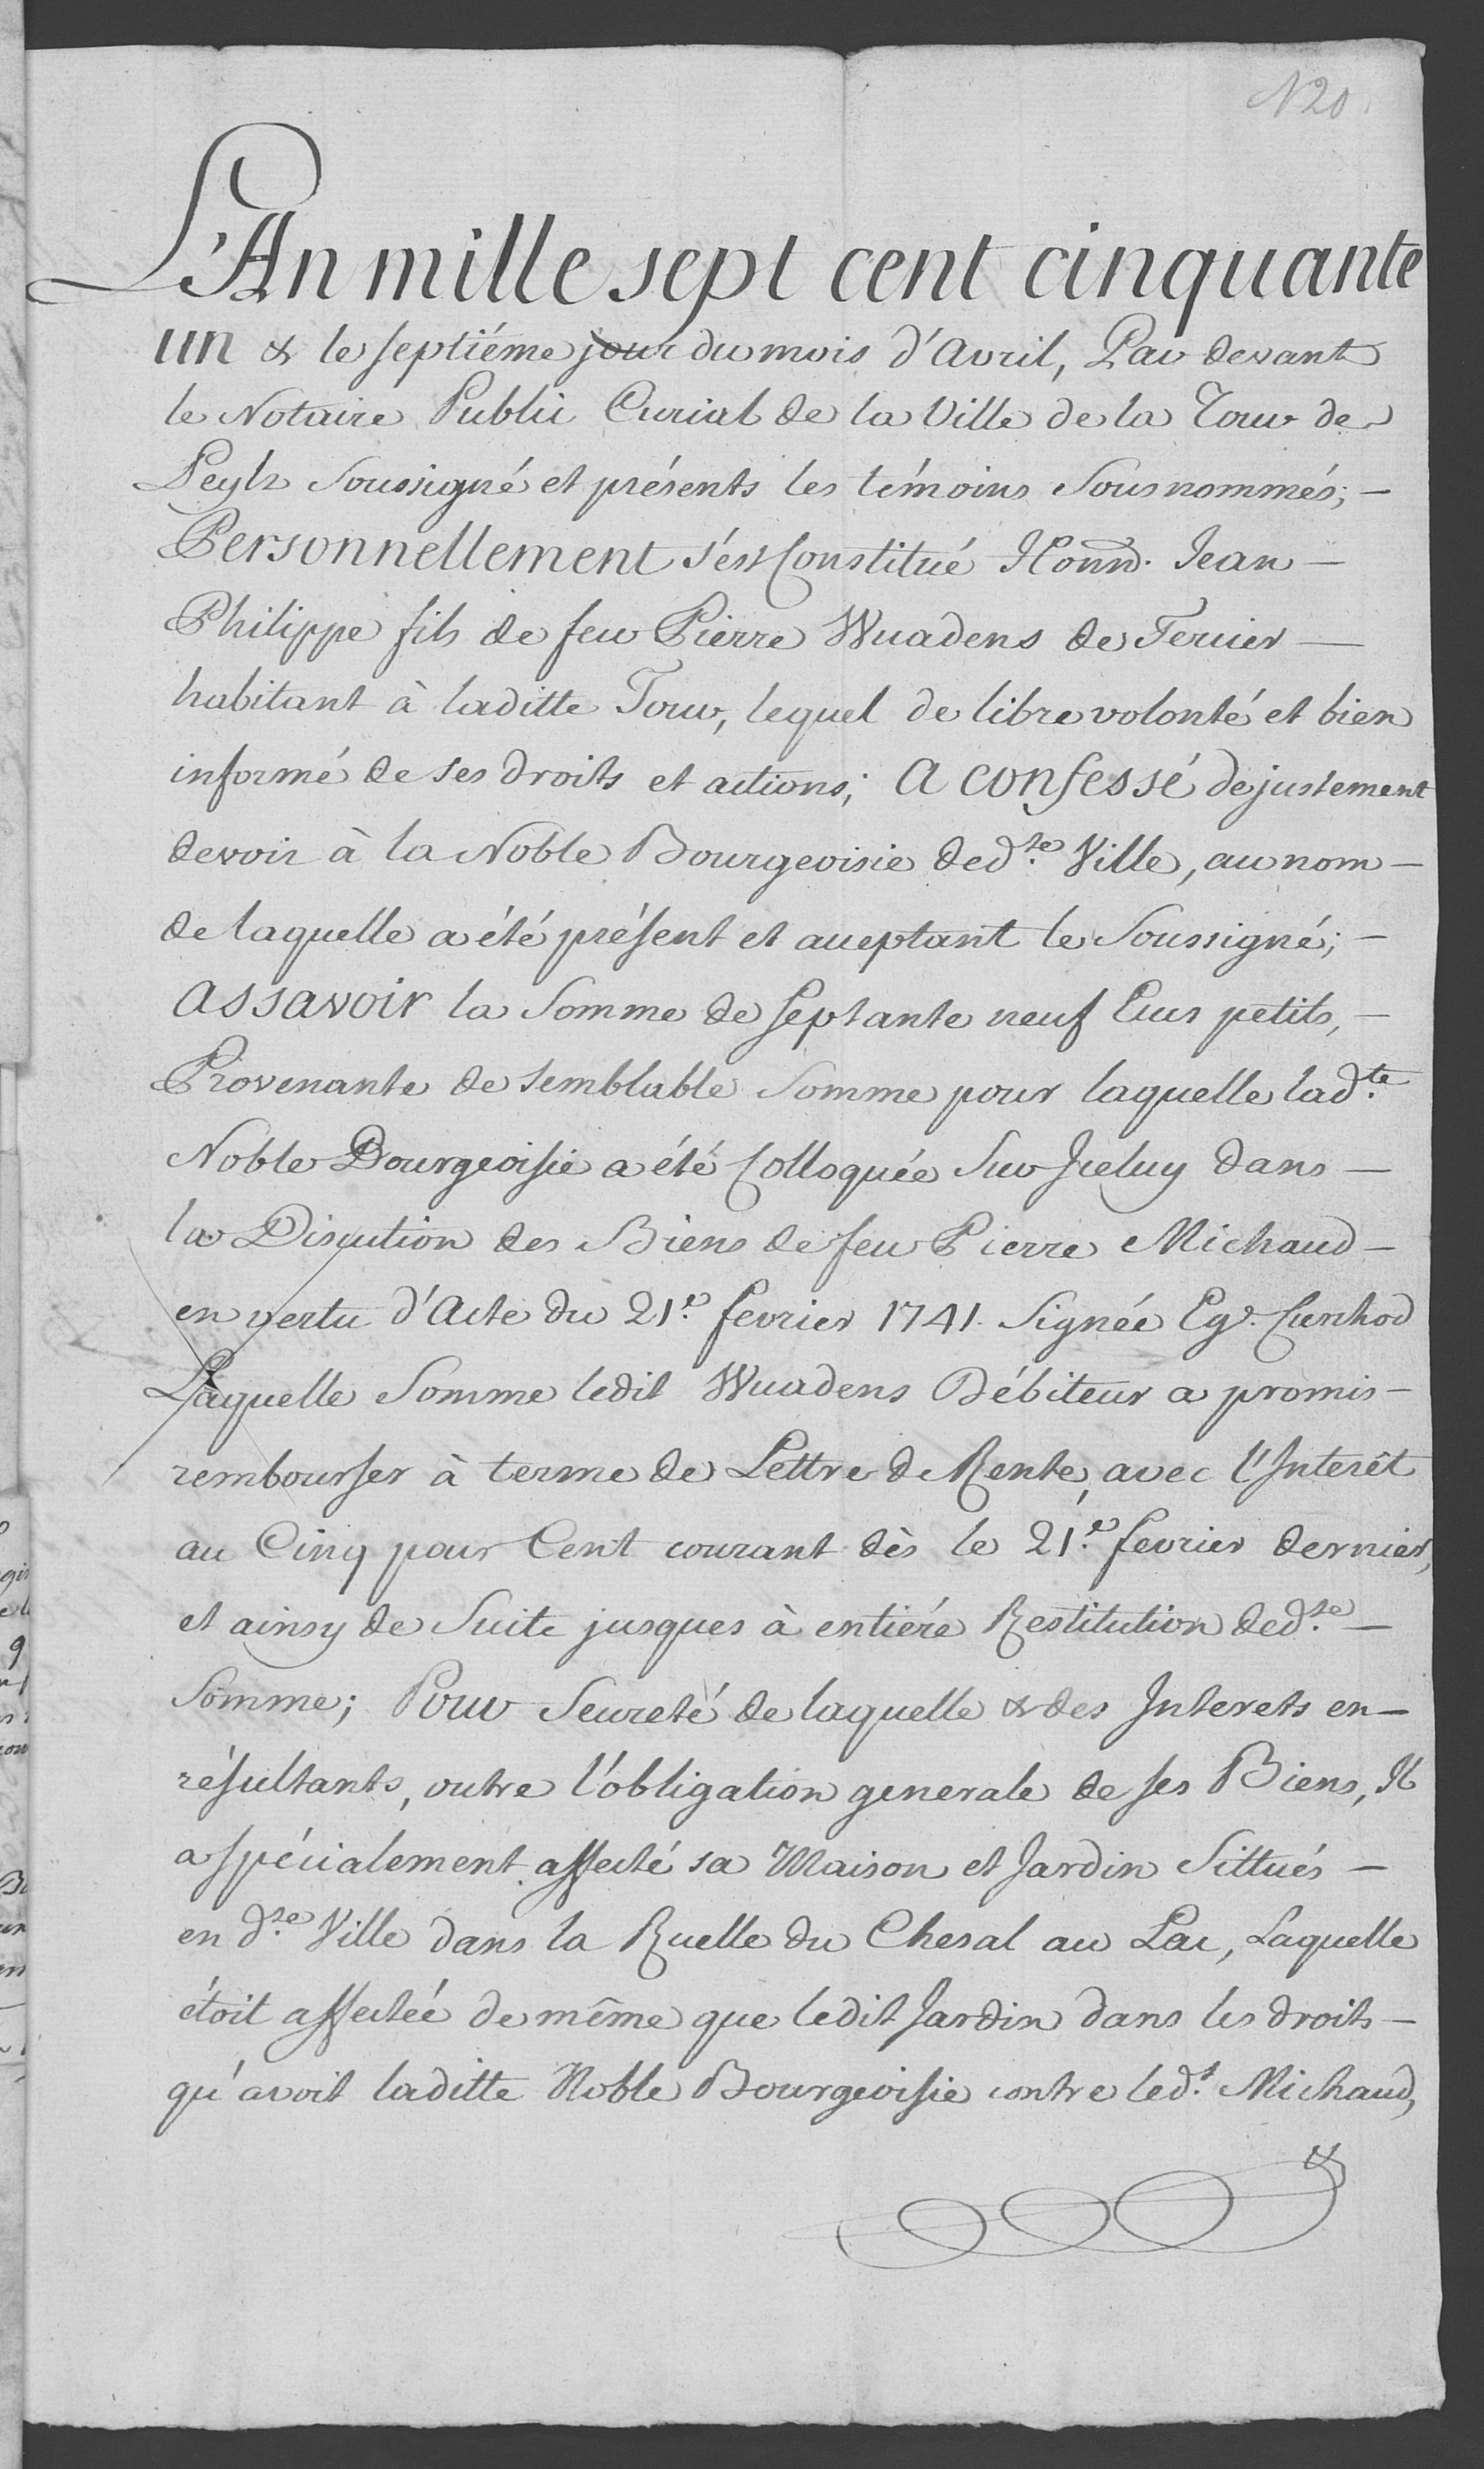 N 20
L'An mille sept cent cinquante
un & le septiéme jour du mois d'Avril, Par devant
le Notaire Public Curial de la Ville de la Tour de
Peylz Soussigné et présents les témoins Sousnommés; –
Personnellement s'est Constitué Honn. Jean –
Philippe fils de feu Pierre Wuadens de Fercier –
habitant à laditte Tour, lequel de libre volonté et bien
informé de ses droits et actions; a confessé de justement
devoir à la Noble Bourgeoisie ded.te Ville, au nom –
de laquelle a été présent et acceptant le Soussigné; –
assavoir la Somme de septante neuf Ecus petits, –
Provenante de semblable Somme pour laquelle lad.te
Noble Bourgeoisie a été Colloquée Sur Iceluy dans –
la Discution des Biens de feu Pierre Michaud –
en vertu d'Acte du 21.e fevrier 1741. Signée Eg. Curchod
Laquelle Somme ledit Wuadens Débiteur a promis –
rembourser à terme de Lettre de Rente, avec l'Interêt
au Cinq pour Cent courant dès le 21.e fevrier dernier,
et ainsy de Suite jusques à entiére Restitution ded.te –
Somme; Pour Seureté de laquelle & des Interets en –
résultants, outre l'obligation generale de ses Biens, Il
a spécialement affecté sa Maison et Jardin Sittués –
en d.te Ville dans la Ruelle du Chesal au Lac, Laquelle
étoit affectée de même que ledit Jardin dans les droits –
qu'avoit laditte Noble Bourgeoisie contre led.t Michaud,
&